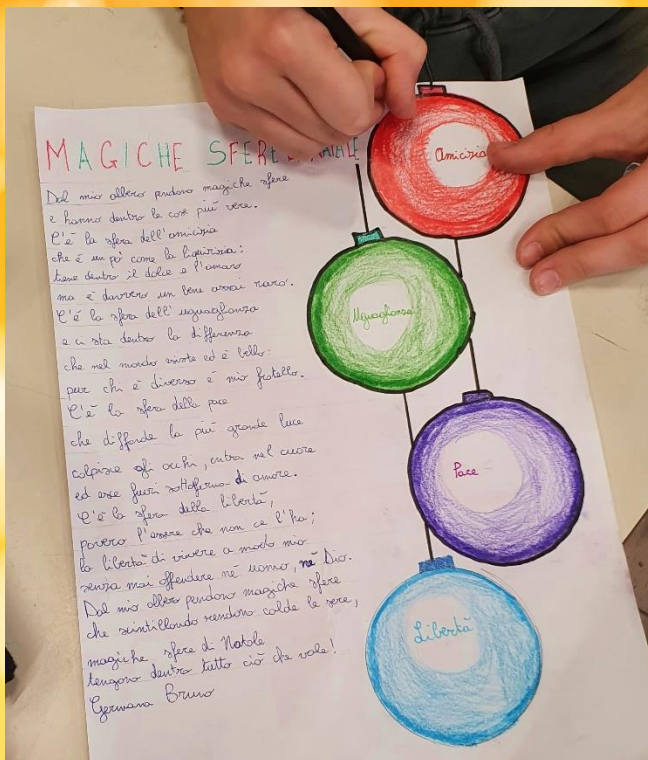 MAGICHE SFERE NATALE
Dal mio albero pendono magiche sfere
e hanno dentro le cose più vere.
C'è la sfera dell'amicizia
che è un po' come la liquirizia:
tiene dentro il dolce e l'amaro
ma è davvero un bene assai raro.
C'è la sfera dell'uguaglianza
e ci sta dentro la differenza
che nel mondo esiste ed è bello:
pur chi è diverso è mio fratello.
C'è la sfera della pace
che diffonde la più grande luce
colpisce gli occhi, entra nel cuore
ed esce fuori sottoforma di amore.
C'è la sfera della libertà,
povero l'essere che non ce l'ha;
la libertà di vivere a modo mio
senza mai offendere né uomo, né Dio.
Dal mio albero pendono magiche sfere
che scintillando rendono calde le sere,
magiche sfere di Natale
tengono dentro tutto ciò che vale!
Germana Bruno
Amicizia
Uguaglianza
Pace
Libertà